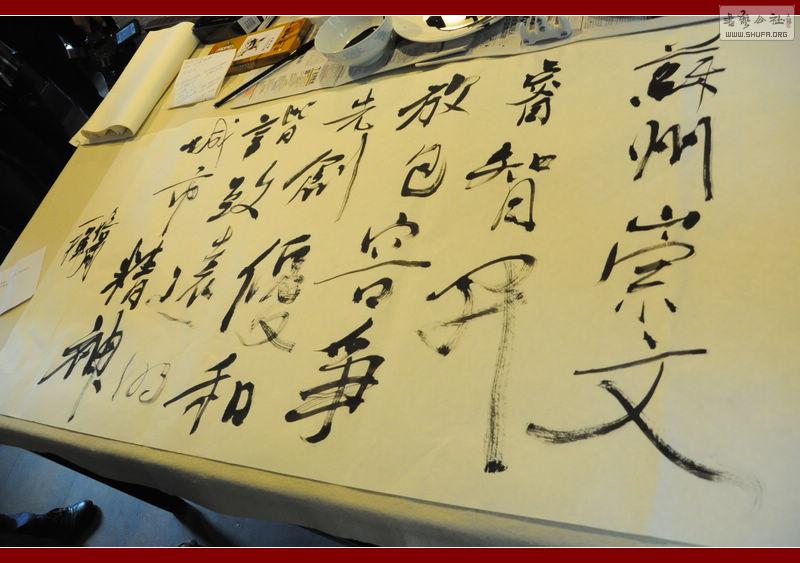 蘇州崇文
睿智开
放包容爭
先創優和
諧致遠的
城市精神
書藝公社
WWW.SHUFA.ORG